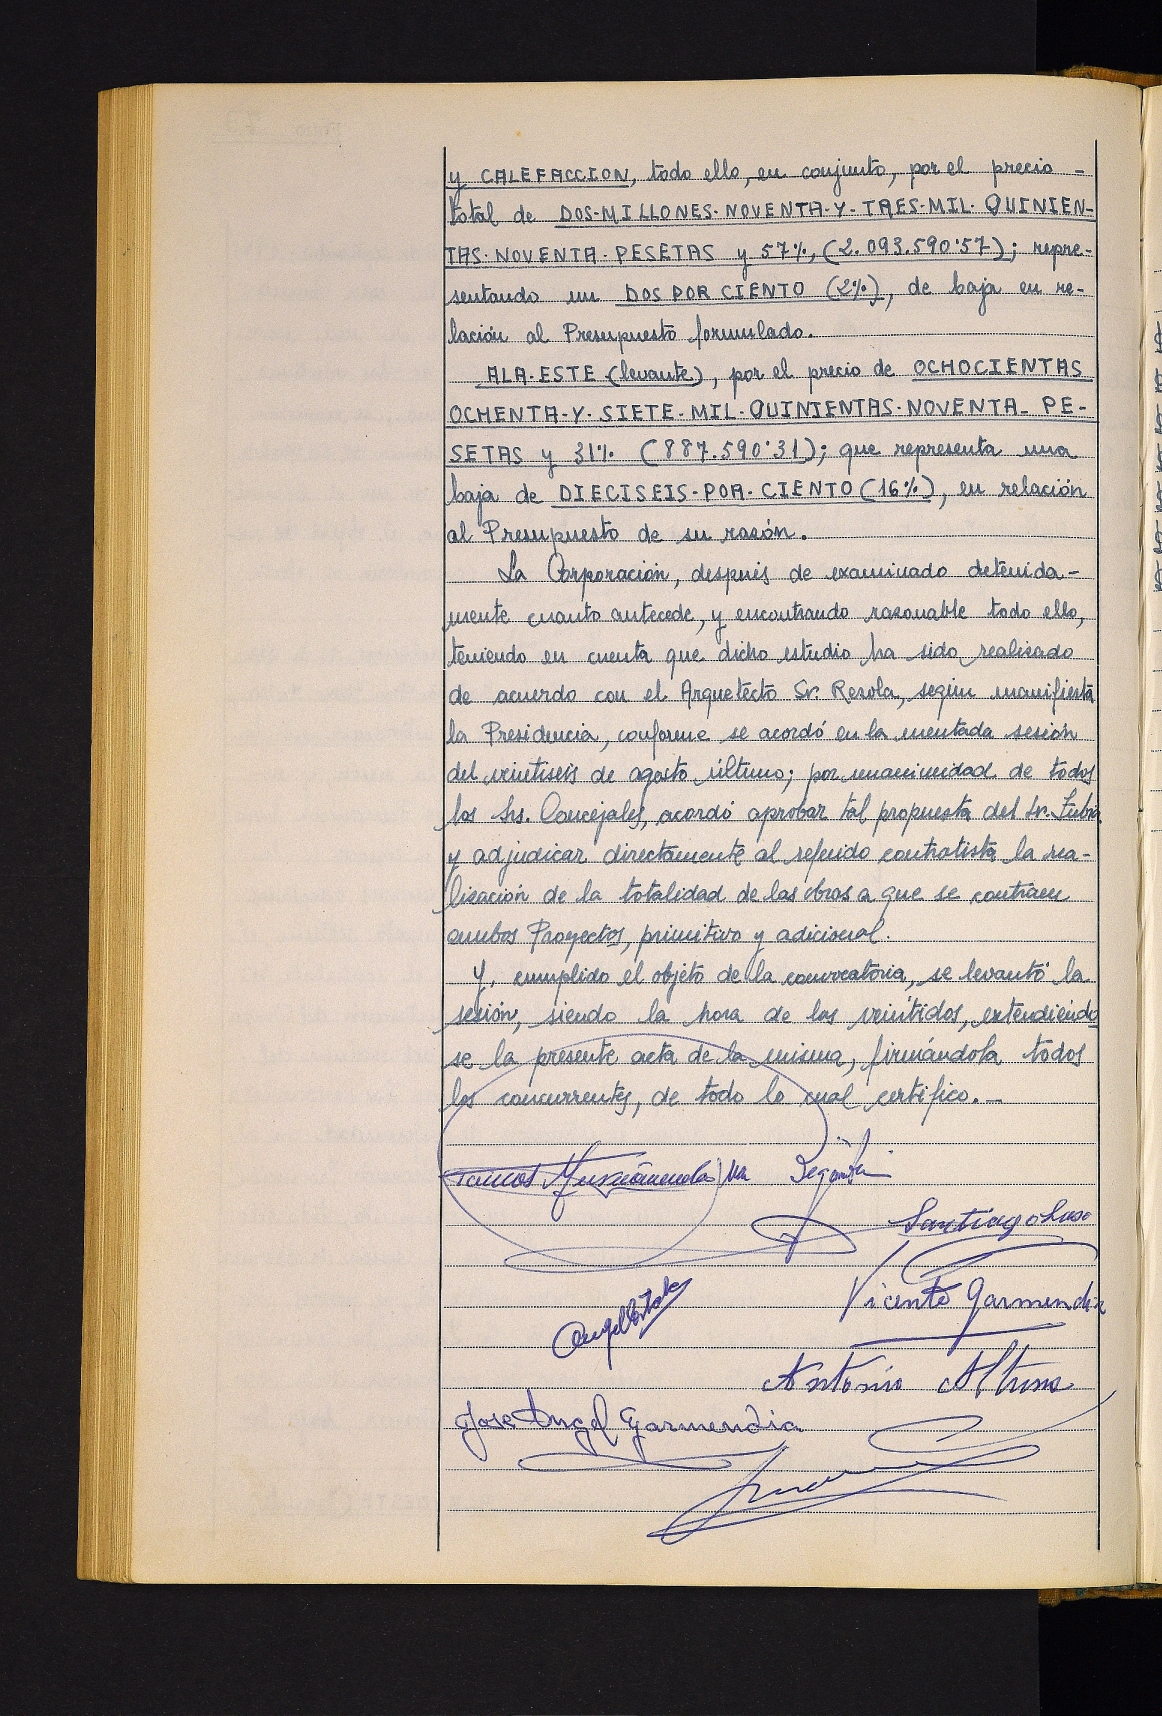 y CALEFACCION, todo ello, en conjunto, por el precio -
total de DOS-MILLONES-NOVENTA-Y-TRES-MIL-QUINIEN-
TAS-NOVENTA-PESETAS y 57%, (2.093.590'57); repre-
sentando un DOS POR CIENTO (2%), de baja en re-
lación al Presupuesto formulado.
ALA-ESTE (levante), por el precio de OCHOCIENTAS
OCHENTA-Y-SIETE-MIL-QUINIENTAS-NOVENTA-PE-
SETAS y 31% (887.590'31); que representa una
baja de DIECISEIS-POR-CIENTO (16%), en relación
al Presupuesto de su razón.
La Corporación, después de examinado detenida-
mente cuanto antecede, y encontrando razonable todo ello,
teniendo en cuenta que dicho estudio ha sido realizado
de acuerdo con el Arquetecto Sr. Rezola, según manifiesta
la Presidencia, conforme se acordó en la mentada sesión
del veintiseis de agosto último; por unanimidad de todos
los Srs. Concejales, acordó aprobar tal propuesta del Sr.
y adjudicar directamente al referido contratista la rea-
lización de la totalidad de las obras a que se contraen
ambos Proyectos, primitivo y adicional.
Y, cumplido el objeto de la convocatoria, se levantó la
sesión, siendo la hora de las veintidos, extendiendo
se la presente acta de la misma, firmándola todos
los concurrentes, de todo lo cual certifico.-
Santiago
Vicente Garmendia
Angel
Antonio Altuna
Jose Angel Garmendia